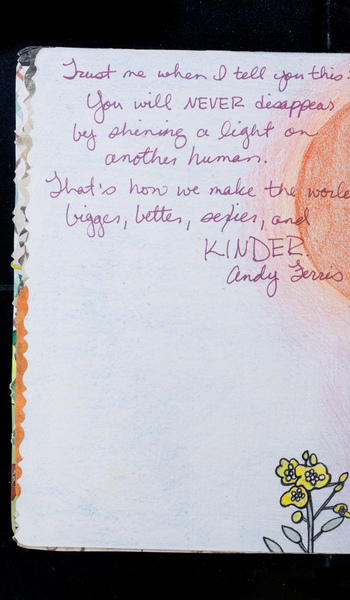 Trust me when I tell you this:
You will NEVER disappear
by shining a light on
another human.
That's how we make the world
bigger, better, sexier, and
KINDER.
Andy Ferris